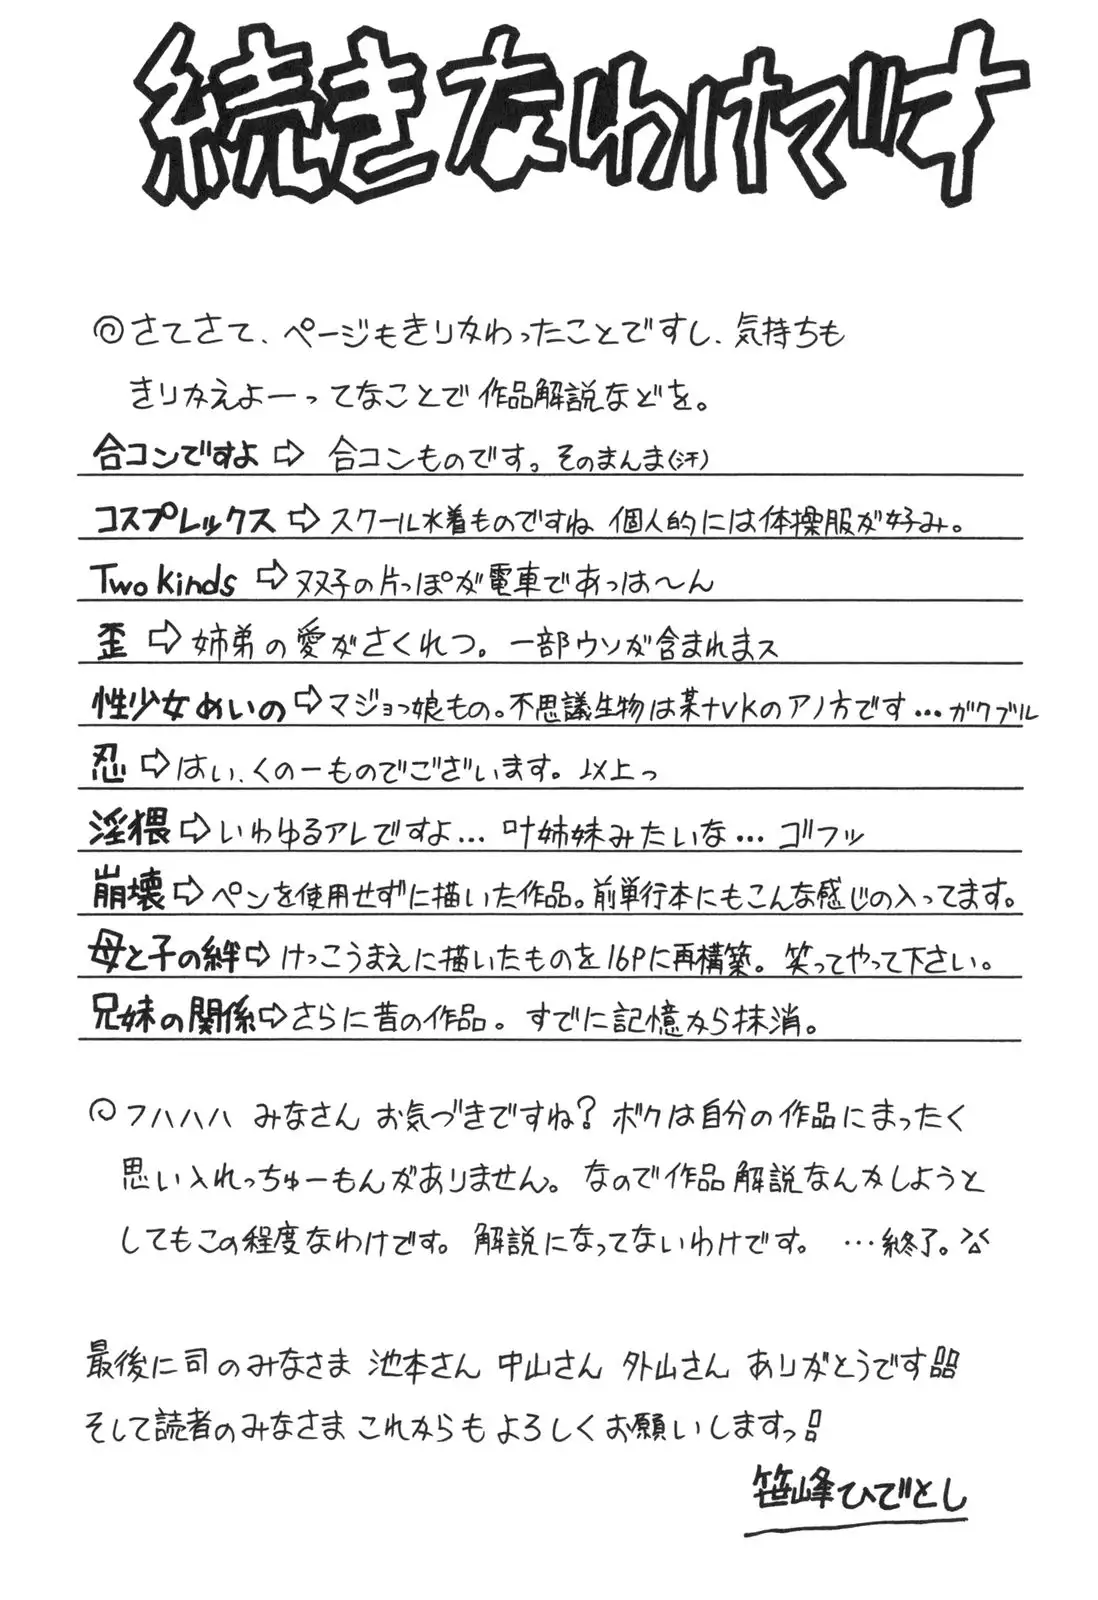 続きなわけです
◎さてさて、ページもきりかわったことですし、気持ちも
きりかえよーってなことで作品解説などを。
合コンですよ⇨合コンものです。そのまんま(汗)
コスプレックス⇨スクール水着ものですね 個人的には体操服が好み。
Two kinds⇨双子の片っぽが電車であっは〜ん
歪⇨姉弟の愛がさくれつ。一部ウソが含まれまス
性少女めいの⇨マジョっ娘もの。不思議生物は某tvkのアノ方です…ガクブル
忍⇨はい、くの一ものでございます。以上っ
淫猥⇨いわゆるアレですよ…叶姉妹みたいな…ゴフッ
崩壊⇨ペンを使用せずに描いた作品。前単行本にもこんな感じの入ってます。
母と子の絆⇨けっこうまえに描いたものを16Pに再構築。笑ってやって下さい。
兄妹の関係⇨さらに昔の作品。すでに記憶から抹消。
◎フハハハ みなさん お気づきですね？ボクは自分の作品にまったく
思い入れっちゅーもんがありません。なので作品解説なんかしようと
してもこの程度なわけです。解説になってないわけです。…終了。
最後に司のみなさま 池本さん 中山さん 外山さん ありがとうです!!
そして読者のみなさま これからもよろしくお願いしますっ!
笹峰ひでとし